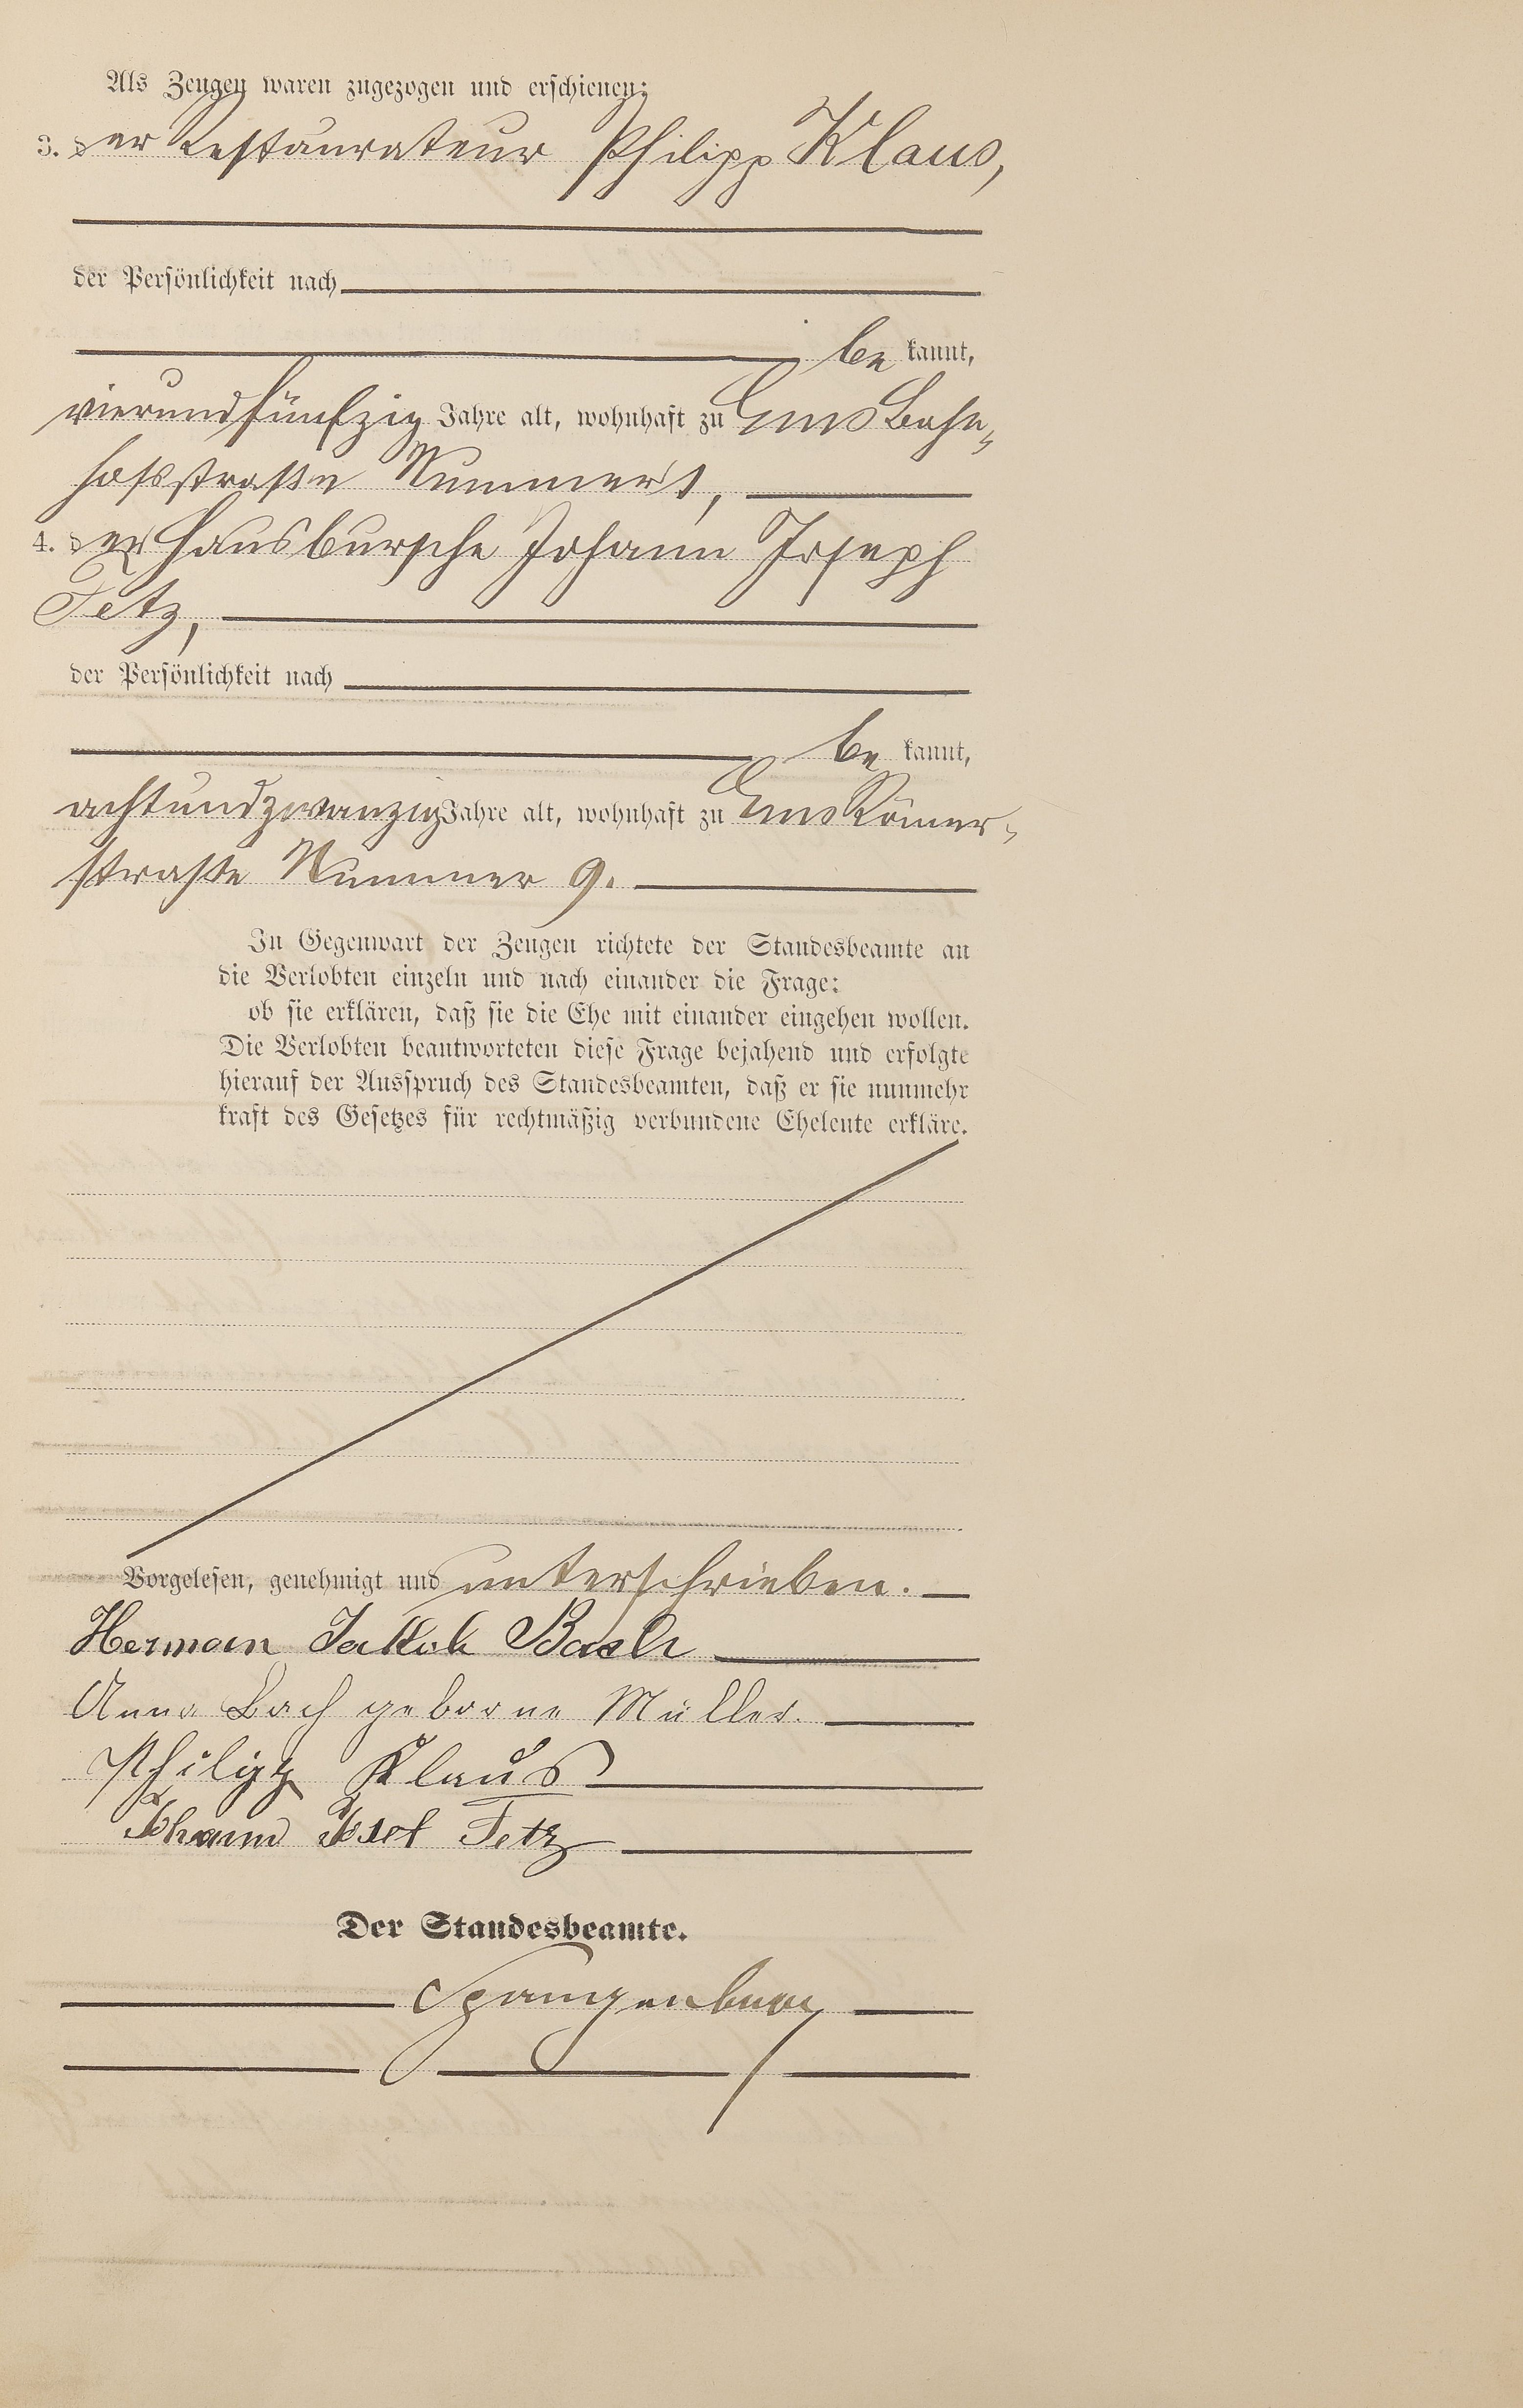 Als Zeugen waren zugezogen und erschienen:
3. der Restaurateur Philipp Klaus,
der Persönlichkeit nach
be kannt,
vierundfünfzig Jahre alt, wohnhaft zu Ems Bahn-
hofsstraße Nummer 1,
4. der Hausbursche Johann Joseph
Fetz,
der Persönlichkeit nach
be kannt,
achtundzwanzig Jahre alt, wohnhaft zu Ems Römer-
straße Nummer 9.
In Gegenwart der Zeugen richtete der Standesbeamte an
die Verlobten einzeln und nach einander die Frage:
ob sie erklären, daß sie die Ehe mit einander eingehen wollen.
Die Verlobten beantworteten diese Frage bejahend und erfolgte
hierauf der Ausspruch des Standesbeamten, daß er sie nunmehr
kraft des Gesetzes für rechtmäßig verbundene Eheleute erkläre.
Vorgelesen, genehmigt und unterschrieben.
Herman Jakob Bach
Anna Bach geborne Müller.
Philipp Klaus
Johann Josef Fetz
Der Standesbeamte.
Spangenberg